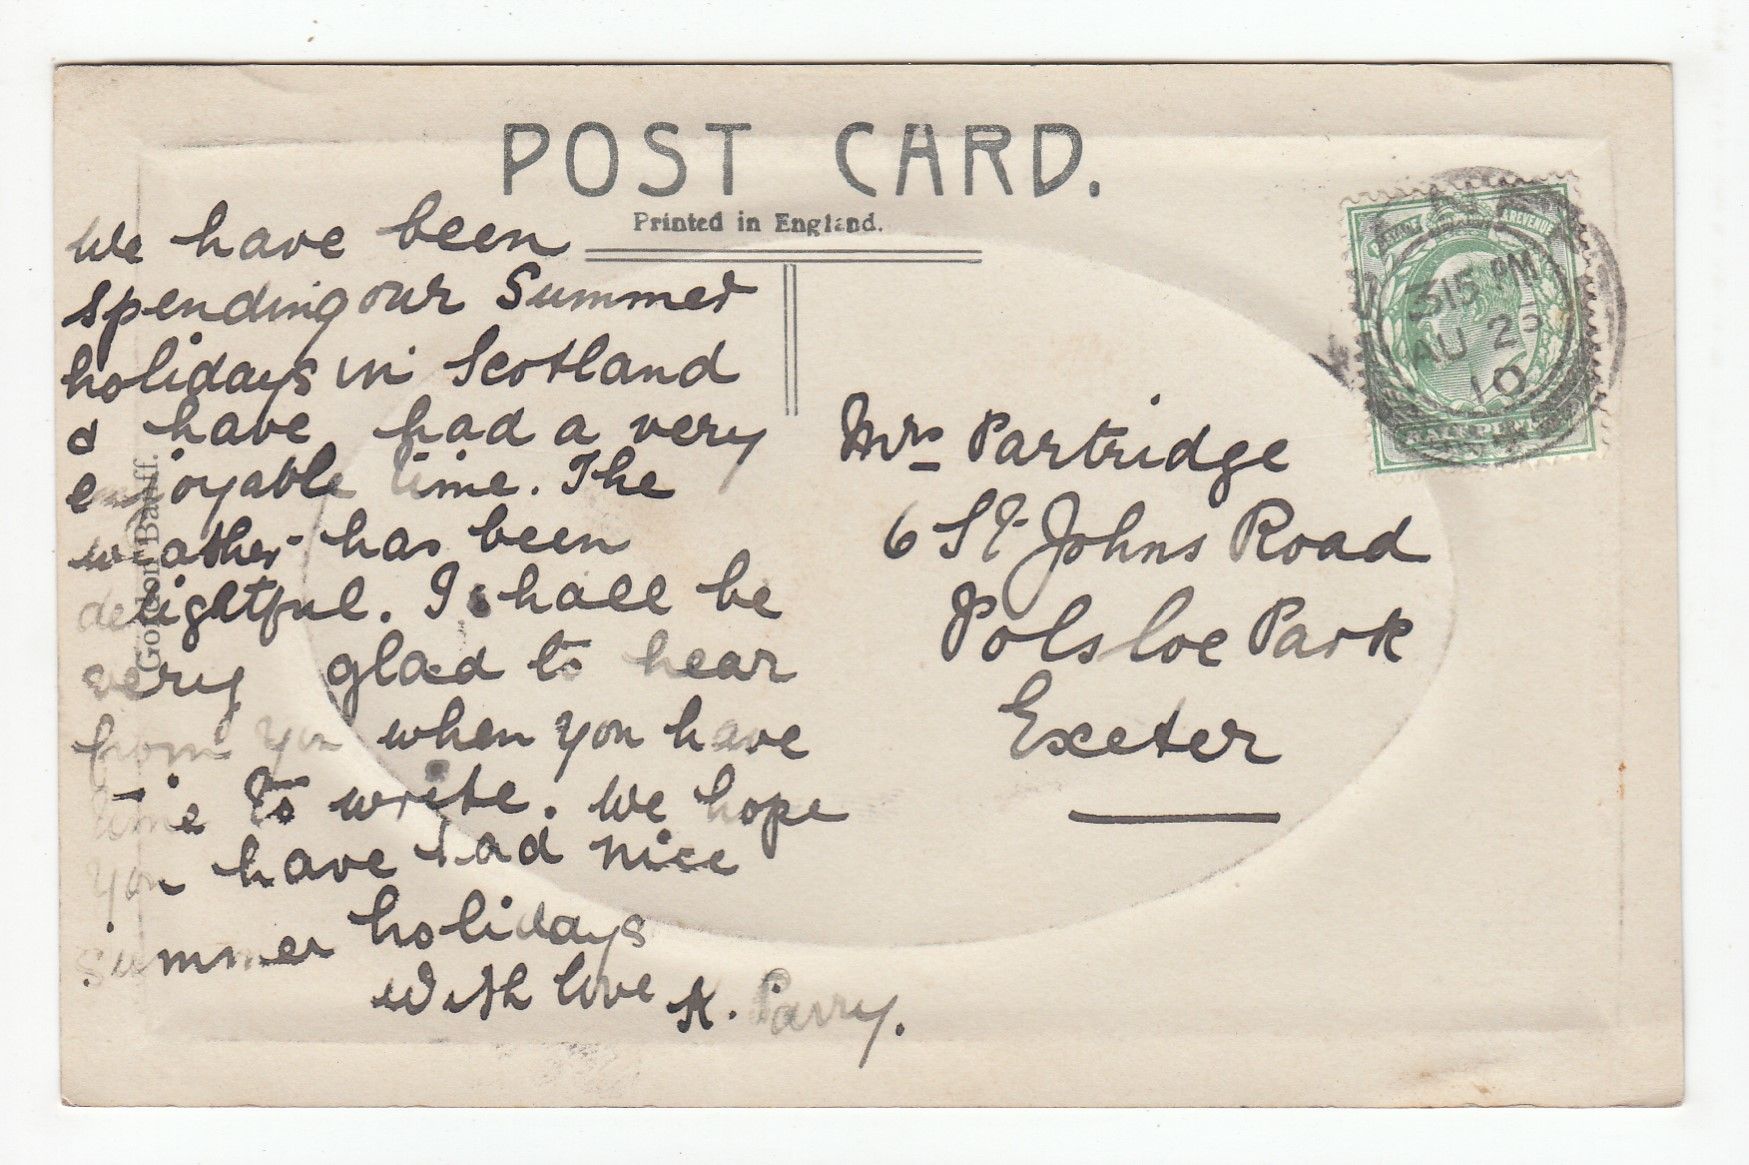 POST CARD.
Printed in England.
We have been
spending our Summer
holidays in Scotland
& have had a very
enjoyable time. The
weather has been
delightful. I shall be
very glad to hear
from you when you have
time to write. We hope
you have had nice
summer holidays
With love K. Parry.
Gordon Banff.
Mrs Partridge
6 St Johns Road
Polsloe Park
Exeter
POSTAGE & REVENUE
BANFF
3 15 PM
AU 2
10